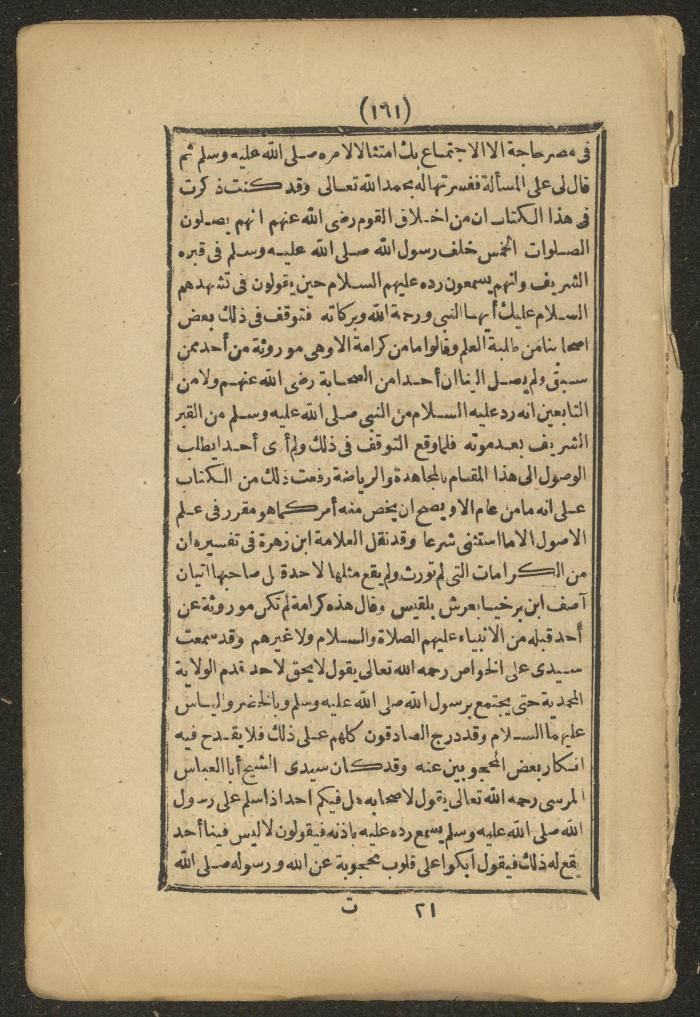 (١٦١)
فى مصر حاجة الا الاجتماع بك امتثالا لامره صلى الله عليه وسلم ثم
قال لى على المسألة ففسرتها له بحمد الله تعالى وقد كنت ذكرت
فى هذا الكتاب ان من اخلاق القوم رضى الله عنهم انهم يصلون
الصلوات الخمس خلف رسول الله صلى الله عليه وسلم فى قبره
الشريف وانهم يسمعون رده عليهم السلام حين يقولون فى تشهدهم
السلام عليك أيها النبى ورحمة الله وبركاته فتوقف فى ذلك بعض
اصحابنا من طلبة العلم وقالوا ما من كرامة الا وهى موروثة من أحد ممن
سبق ولم يصل الينا ان أحدا من الصحابة رضى الله عنهم ولا من
التابعين انه رد عليه السلام من النبى صلى الله عليه وسلم من القبر
الشريف بعد موته فلما وقع التوقف فى ذلك ولم أرى أحدا يطلب
الوصول الى هذا المقام بالمجاهدة والرياضة رفعت ذلك من الكتاب
على انه ما من عام الا ويصح ان يخص منه أمر كما هو مقرر فى علم
الاصول الا ما استثنى شرعا وقد نقل العلامة ابن زهرة فى تفسيره ان
من الكرامات التى لم تورث ولم يقع مثلها لاحد قبل صاحبها اتيان
آصف ابن برخيا بعرش بلقيس وقال هذه كرامة لم تكن موروثة عن
أحد قبله من الانبياء عليهم الصلاة والسلام ولا غيرهم وقد سمعت
سيدى على الخواص رحمه الله تعالى يقول لا يحق لاحد قدم الولاية
المحمدية حتى يجتمع برسول الله صلى الله عليه وسلم وبالخضر والياس
عليهما السلام وقد درج الصادقون كلهم على ذلك فلا يقدح فيه
انكار بعض المحجوبين عنه وقد كان سيدى الشيخ أبا العباس
المرسى رحمه الله تعالى يقول لاصحابه هل فيكم احد اذا سلم على رسول
الله صلى الله عليه وسلم يسمع رده عليه باذنه فيقولون لا ليس فينا أحد
يقع له ذلك فيقول ابكوا على قلوب محجوبة عن الله ورسوله صلى الله
٢١ ت